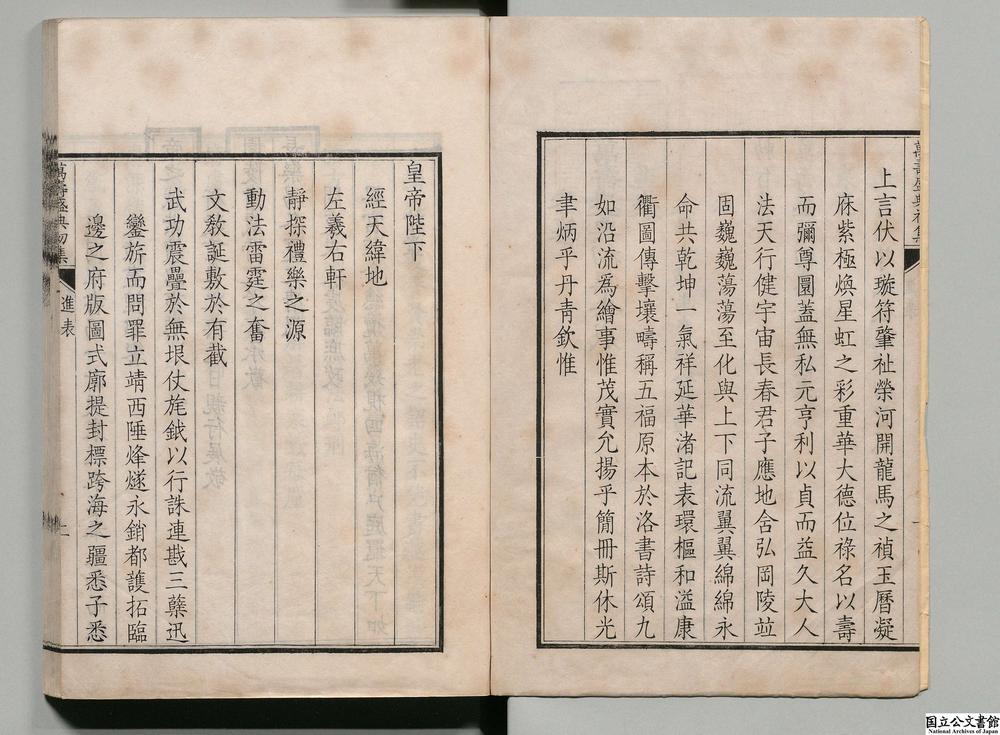 上言伏以璇符肇祉榮河開龍馬之禎玉曆凝
庥紫極煥星虹之彩重華大德位祿名以壽
而彌尊圜蓋無私元亨利以貞而益久大人
法天行健宇宙長春君子應地含弘岡陵竝
固巍巍蕩蕩至化與上下同流翼翼綿綿永
命共乾坤一氣祥延華渚記表環樞和溢康
衢圖傳擊壤疇稱五福原本於洛書詩頌九
如沿流爲繪事惟茂實允揚乎簡冊斯休光
聿炳乎丹靑欽惟
皇帝陛下
經天緯地
左羲右軒
靜探禮樂之源
動法雷霆之奮
文敎誕敷於有截
武功震疊於無垠仗旄鉞以行誅連戡三孽迅
鑾旂而問罪立靖西陲烽燧永銷都護拓臨
邊之府版圖式廓提封標跨海之疆悉子悉
萬壽盛典初集
進表
二
国立公文書館
National Archives of Japan